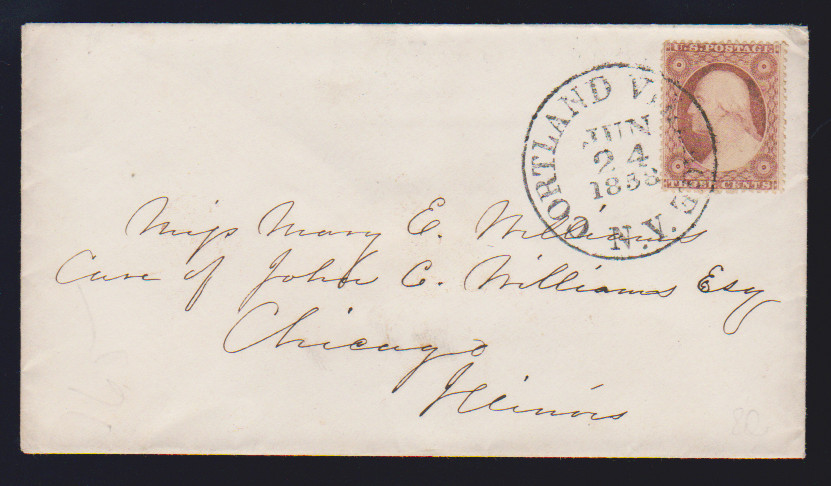 U.S. POSTAGE
THREE CENTS
CORTLAND VILLAGE
JUN
24
1858
N.Y.
Miss Mary E. Williams
Care of John C. Williams Esq
Chicago
Illinois